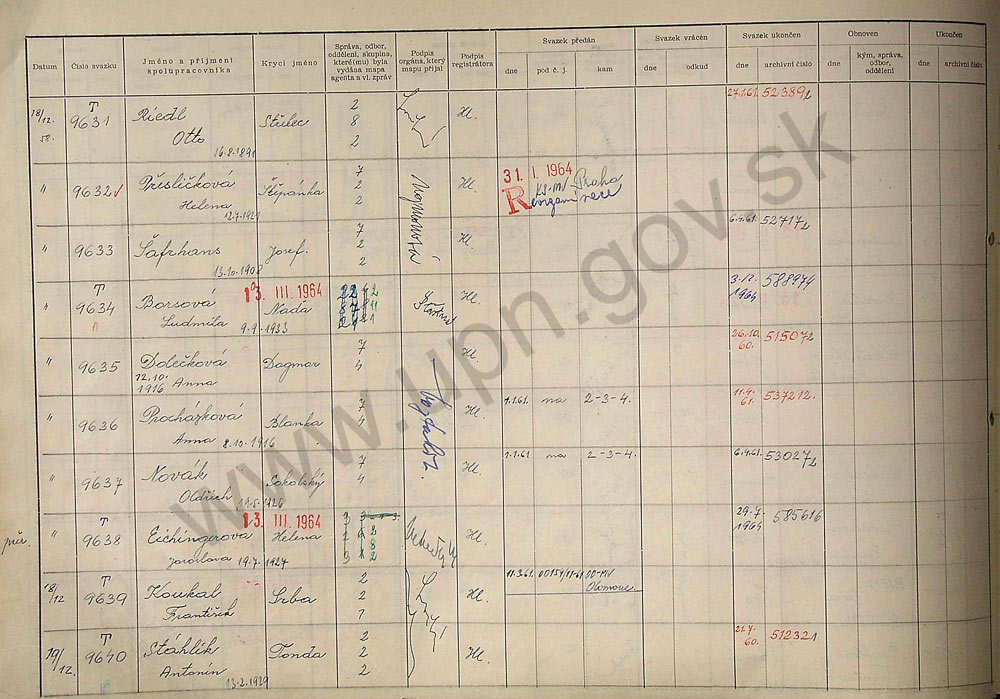 Datum
Číslo svazku
Jméno a příjmení spolupracovníka
Krycí jméno
Správa, odbor, oddělení, skupina, které(mu) byla vydána mapa agenta a vl. zpráv
Podpis orgána, který mapu přijal
Podpis registrátora
Svazek předán
dne pod č. j. kam
Svazek vrácen
dne odkud
Svazek ukončen
dne archivní číslo
Obnoven
dne kým, správa, odbor, oddělení
Ukončen
dne archivní číslo
18/12. T 9631 Riedl Střelec 2 8 2 Hl. 27.1.61. 52389/2
Otto
16.8.1891
" 9632 Přesličková Štěpánka 7 2 2 Hl. 31. I. 1964 Praha
Helena
12.7.1921
" 9633 Šafrhans Josef. 7 2 2 Hl. 6.4.61. 52717/2
13.10.1908
" T 9634 Borsová 13. III. 1964 Naďa Hl. 3.12. 1964 588974
Ludmila 9.9.1933
" 9635 Dolečková Dagmar 7 4 Hl. 26.10. 60. 51507/2
12.10. 1916 Anna
" 9636 Procházková Blanka 7 4 Hl. 1.1.61. na 2-3-4. 11.4. 61. 537212.
Anna 8.10.1916
" 9637 Novák Sokolský 7 4 Hl. 1.1.61 na 2-3-4. 6.4.61. 53027/2
Oldřich 19.5.1926
T 9638 Eichingerova 13. III. 1964 Helena Hl. 29.7. 1964 585616
Jaroslava 19.7.1927
18/12 T 9639 Koukal Srba 2 2 7 Hl. 11.3.61. Olomouc.
František
19/12. T 9640 Stáhlík Tonda 2 2 2 Hl. 60. 51232/1
Antonín
13.2.1929
www.upn.gov.sk